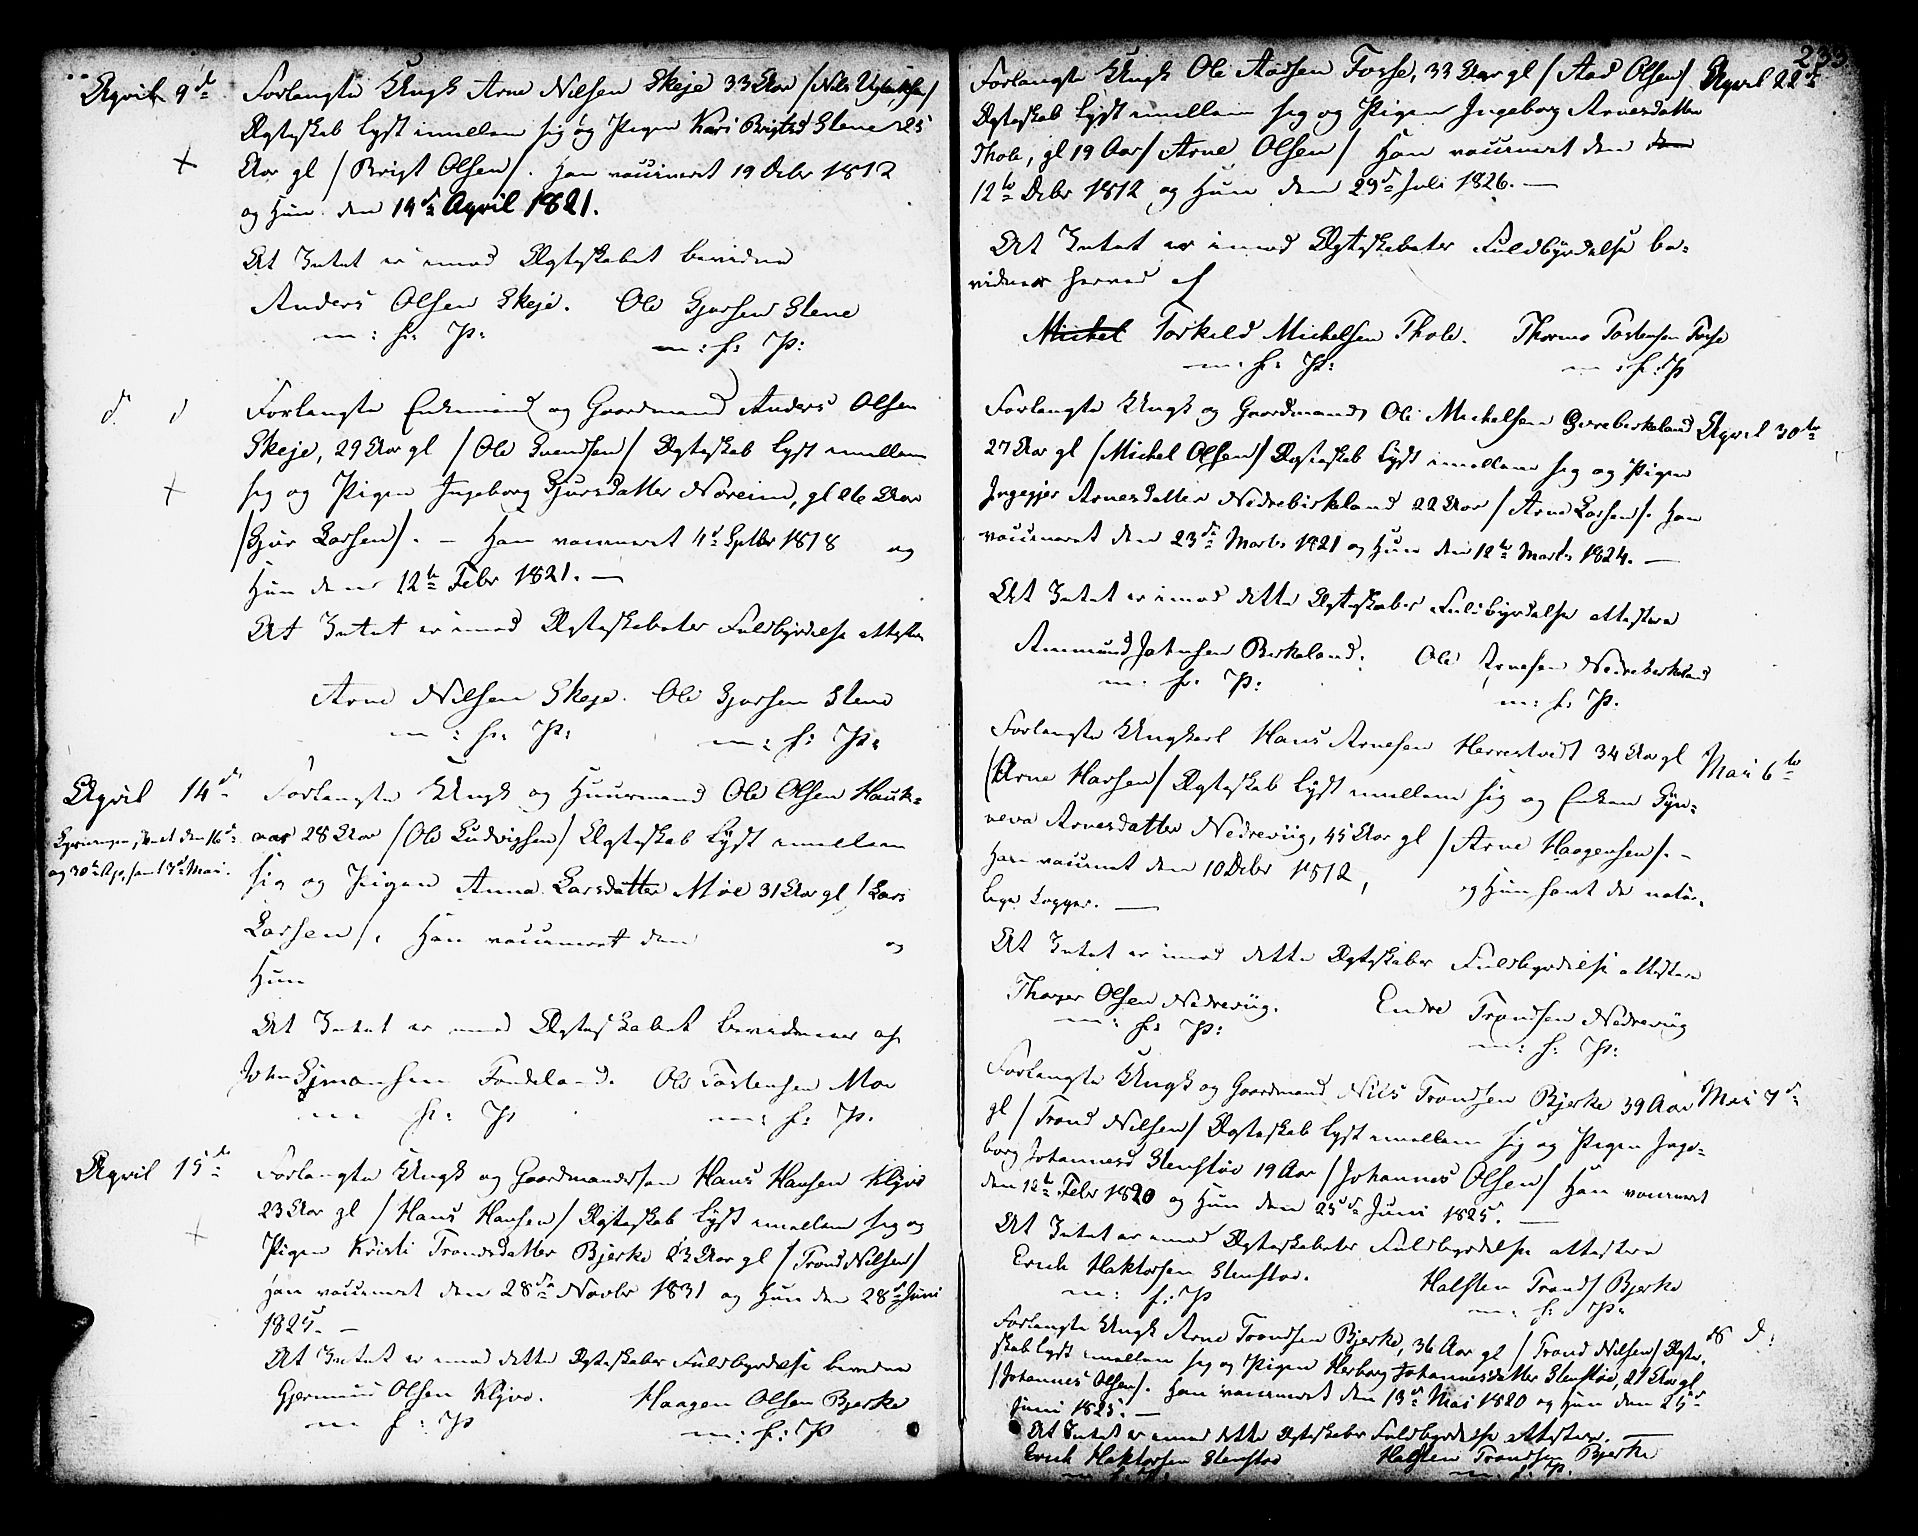 April 9de
Forlangte Ungk Arne Nilsen Skeje 33 Aar /Nils
Ægteskab lyst imellem sig og Pigen Kari Brigtsd Stene 25
Aar gl /Brigt Olsen/. Han vaccineret 19 Decbr 1812
og Hun den 14de April 1821.
At Intet er imod Ægteskabet bevidne
Anders Olsen Skeje. Ole Gjorsen Stene
m: f: P: m: f: P:
d. d
Forlangte Enkemand og Gaardmand Anders Olsen
Skeje, 29 Aar gl /Ole Svendsen/ Ægteskab lyst imellem
sig og Pigen Ingeborg Gjursdatter Noreim, gl 26 Aar
/Gjur Larsen/. – Han vaccineret 4de Septbr 1818 og
Hun den 12te Febr 1821. —
At Intet er imod Ægteskabets Fuldbyrdelse attestere
Arne Nilsen Skeje. Ole Gjorsen Stene
m: f: P: m: f: P:
April 14de
Forlangte Ungk og Huusmand Ole Olsen Hauk-
Lysningen skeet den 16de
aas 28 Aar /Ole Ludvigsen/ Ægteskab lyst imellem
og 30te Apr, samt 7de Mai.
sig og Pigen Anna Larsdatter Moe 31 Aar gl /Lars
Larsen/. Han vaccineret den og
Hun
At Intet er imod Ægteskabet bevidnes af
John Symonsen Fondeland. Ole Torstensen Moe
m f: P m: f: P.
April 15de
Forlangte Ungk og Gaardmandssøn Hans Hansen Klyve
23 Aar gl /Hans Hansen/ Ægteskab lyst imellem sig og
Pigen Kristi Trondsdatter Bjerke 23 Aar gl /Trond Nilsen/
Han vaccineret den 28de Novbr 1831 og Hun den 28de Juni
1825. —
At Intet er imod dette Ægteskabs Fuldbyrdelse bevidne
Gjermund Olsen Klyve. Haagen Olsen Bjerke
m f: P m: f: P
233
Forlangte Ungk Ole Aadsen Fosse, 33 Aar gl /Aad Olsen/ April 22de
Ægteskab lyst imellem sig og Pigen Ingeborg Arnesdatter
Thole, gl 19 Aar /Arne Olsen/ Han vaccineret den den
12te Decbr 1812 og Hun den 29de Juli 1826. —
At Intet er imod Ægteskabets Fuldbyrdelse be-
vidnes herved af
Michel Torkild Michelsen Thole. Thormo Torstensen Fosse
m: f: P: m: f: P
Forlangte Ungk og Gaardmand Ole Michelsen Øvrebirkeland April 30te
27 Aar gl /Michel Olsen/ Ægteskab lyst imellem sig og Pigen
Ingegjer Arnesdatter Nedrebirkeland 22 Aar /Arne Larsen/. Han
vaccineret den 23de Marts 1821 og Hun den 12te Marts 1824. —
At Intet er imod dette Ægteskabs Fuldbyrdelse attestere
Ammund Johnsen Birkeland. Ole Arnesen Nedrebirkeland
m: f: P: m: f: P.
Forlangte Ungkarl Hans Arnesen Herrestvedt 34 Aar gl Mai 6te
/Arne Hansen/ Ægteskab lyst imellem sig og Enken Syn-
neva Arnesdatter Nedreviig, 45 Aar gl /Arne Haagensen/. –
Han vaccineret den 10 Decbr 1812, og Hun havt de natur-
lige Kopper. —
At Intet er imod dette Ægteskabs Fuldbyrdelse attestere
Thorger Olsen Nedreviig. Endre Trondsen Nedreviig
m: f: P: m: f: P:
Forlangte Ungk og Gaardmand Nils Trondsen Bjerke 39 Aar Mai 7de
gl /Trond Nilsen/ Ægteskab lyst imellem sig og Pigen Inge-
borg Johannesd Stenstøe 19 Aar /Johannes Olsen/ Han vaccineret
den 12te Febr 1820 og Hun den 25de Juni 1825. —
At Intet er imod Ægteskabets Fuldbyrdelse attestere
Erich Haktorsen Stenstøe. Halsten Tronds Bjerke
m: f: P m: f: P:
Forlangte Ungk Arne Trondsen Bjerke, 36 Aar gl /Trond Nilsen/ Ægte- d. d:
skab lyst imellem sig og Pigen Herborg Johannesdatter Stenstøe, 21 Aar gl
/Johannes Olsen/. Han vaccineret den 13de Mai 1820 og Hun den 25de
Juni 1825. —
At Intet er imod dette Ægteskabs Fuldbyrdelse attestere. —
Erich Haktorsen Stenstøe Halsten Trondsen Bjerke
m: f: P: m: f: P.